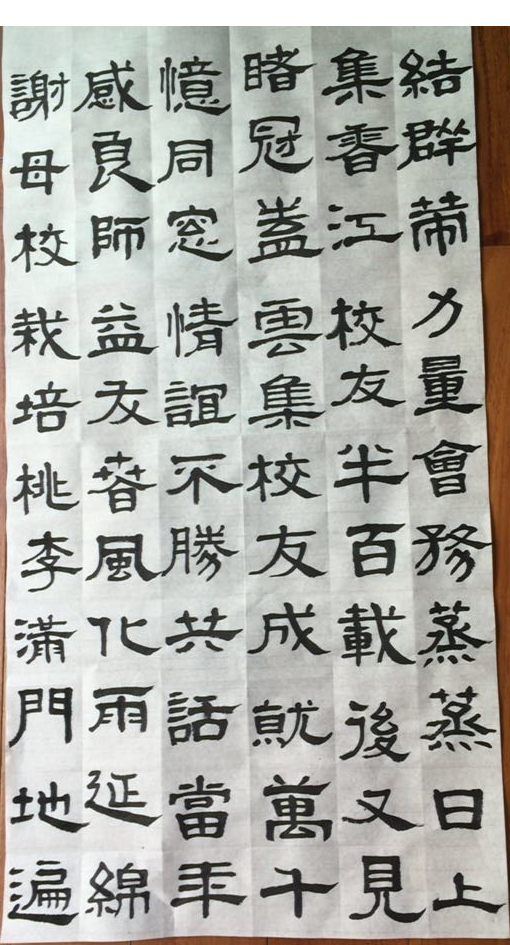 結群策力量會務蒸蒸日上
集香江校友半百載後又見
睹冠蓋雲集校友成就萬千
憶同窓情誼不勝共話當年
感良師益友春風化雨延綿
謝母校栽培桃李滿門地遍